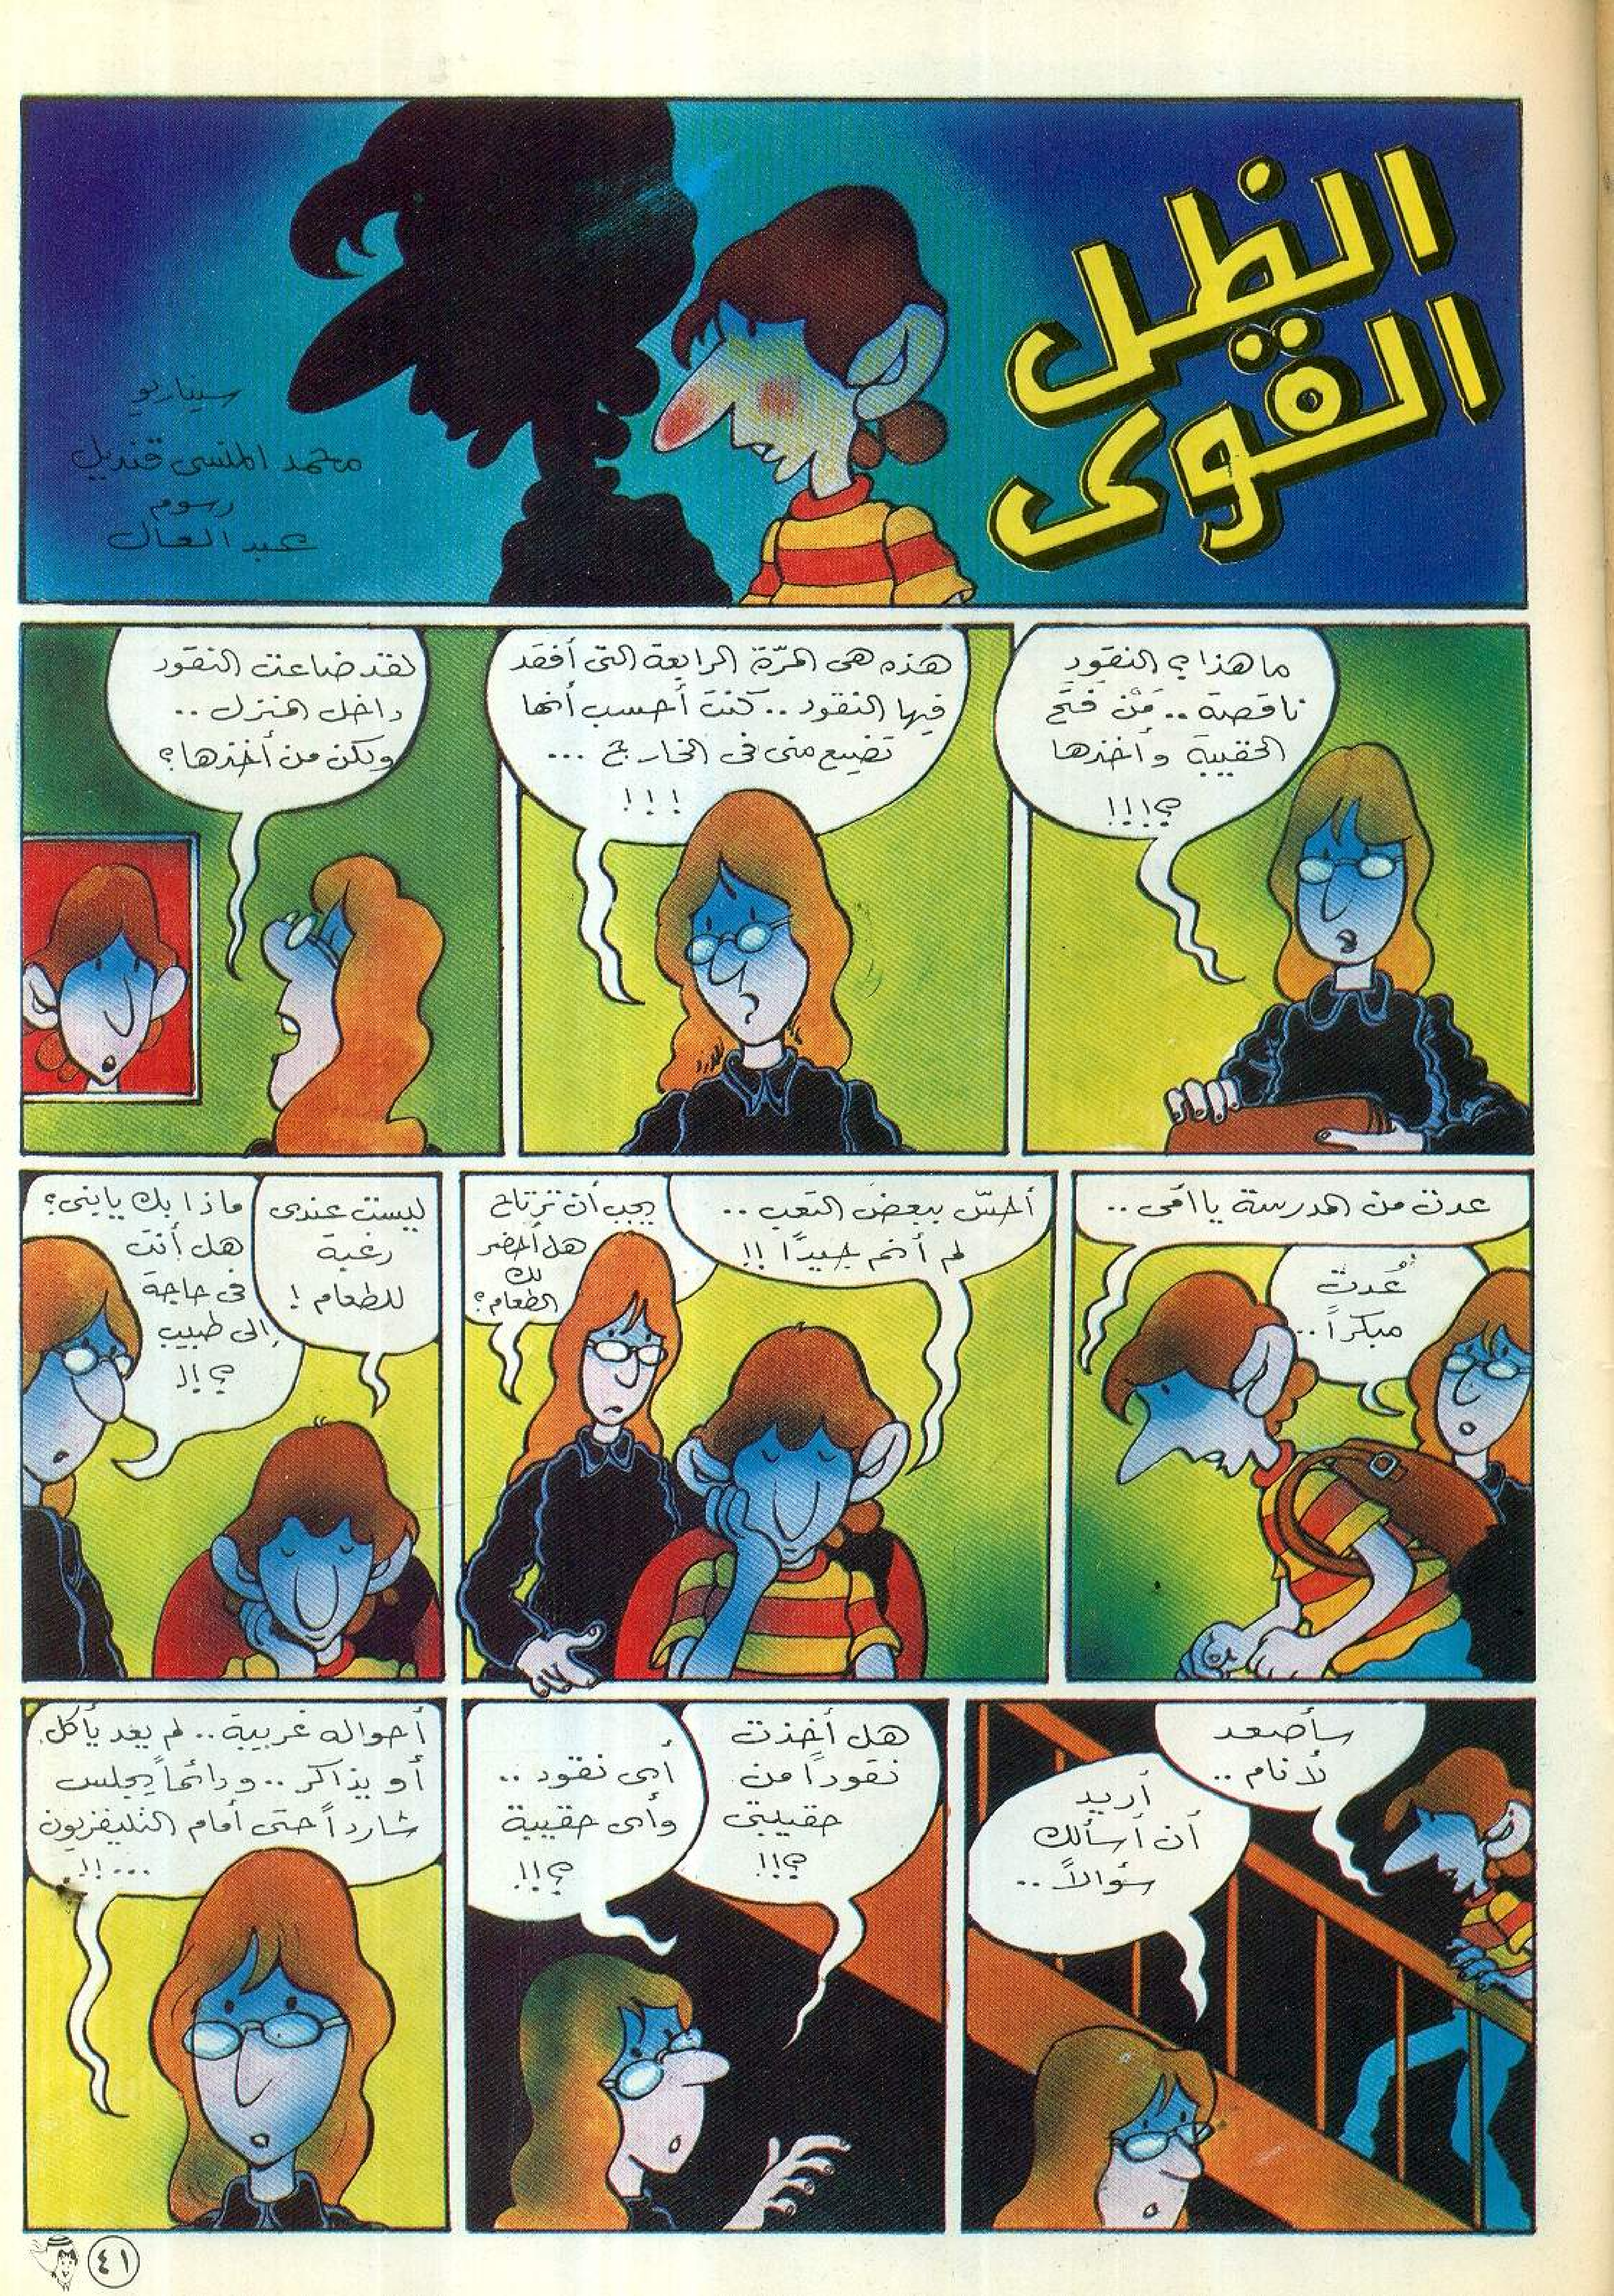 الظل
القوى
سيناريو
محمد المنسى قنديل
رسوم
عبد العال
ما هذا؟ النقود
ناقصة.. مَنْ فتح
الحقيبة وأخذها
؟!!!
هذه هى المرّة الرابعة التى أفقد
فيها النقود.. كنت أحسب أنها
تضيع منى فى الخارج ...
!!!
لقد ضاعت النقود
داخل المنزل..
ولكن من أخذها؟
عدت من المدرسة يا أمى..
عُدت
مبكراً..
أحسّ ببعض التعب..
لم أنم جيداً !!
يجب أن ترتاح
هل أحضر
لك
الطعام؟
ليست عندى
رغبة
للطعام !
ماذا بك يابنى؟
هل أنت
فى حاجة
إلى طبيب
؟!!
سأصعد
لأنام..
أريد
أن أسألك
سؤالاً..
هل أخذت
نقوداً من
حقيبتى
؟!!
أى نقود..
وأى حقيبة
؟!!
أحواله غريبة.. لم يعد يأكل
أو يذاكر.. ودائماً يجلس
شارداً حتى أمام التليفزيون
...!!
٤١